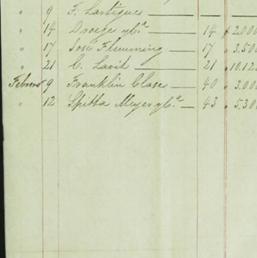 " 9 F. Lartigue
" 14 Droege y Cª 14 " 2.000
" 17 José Flemming 17 " 3.50
" 21 C. 21 " 10.12
Febrero 9 Franklin Chase 40 " 3.00
" 12 Spitta Meyer y Cª 43 " 5.30